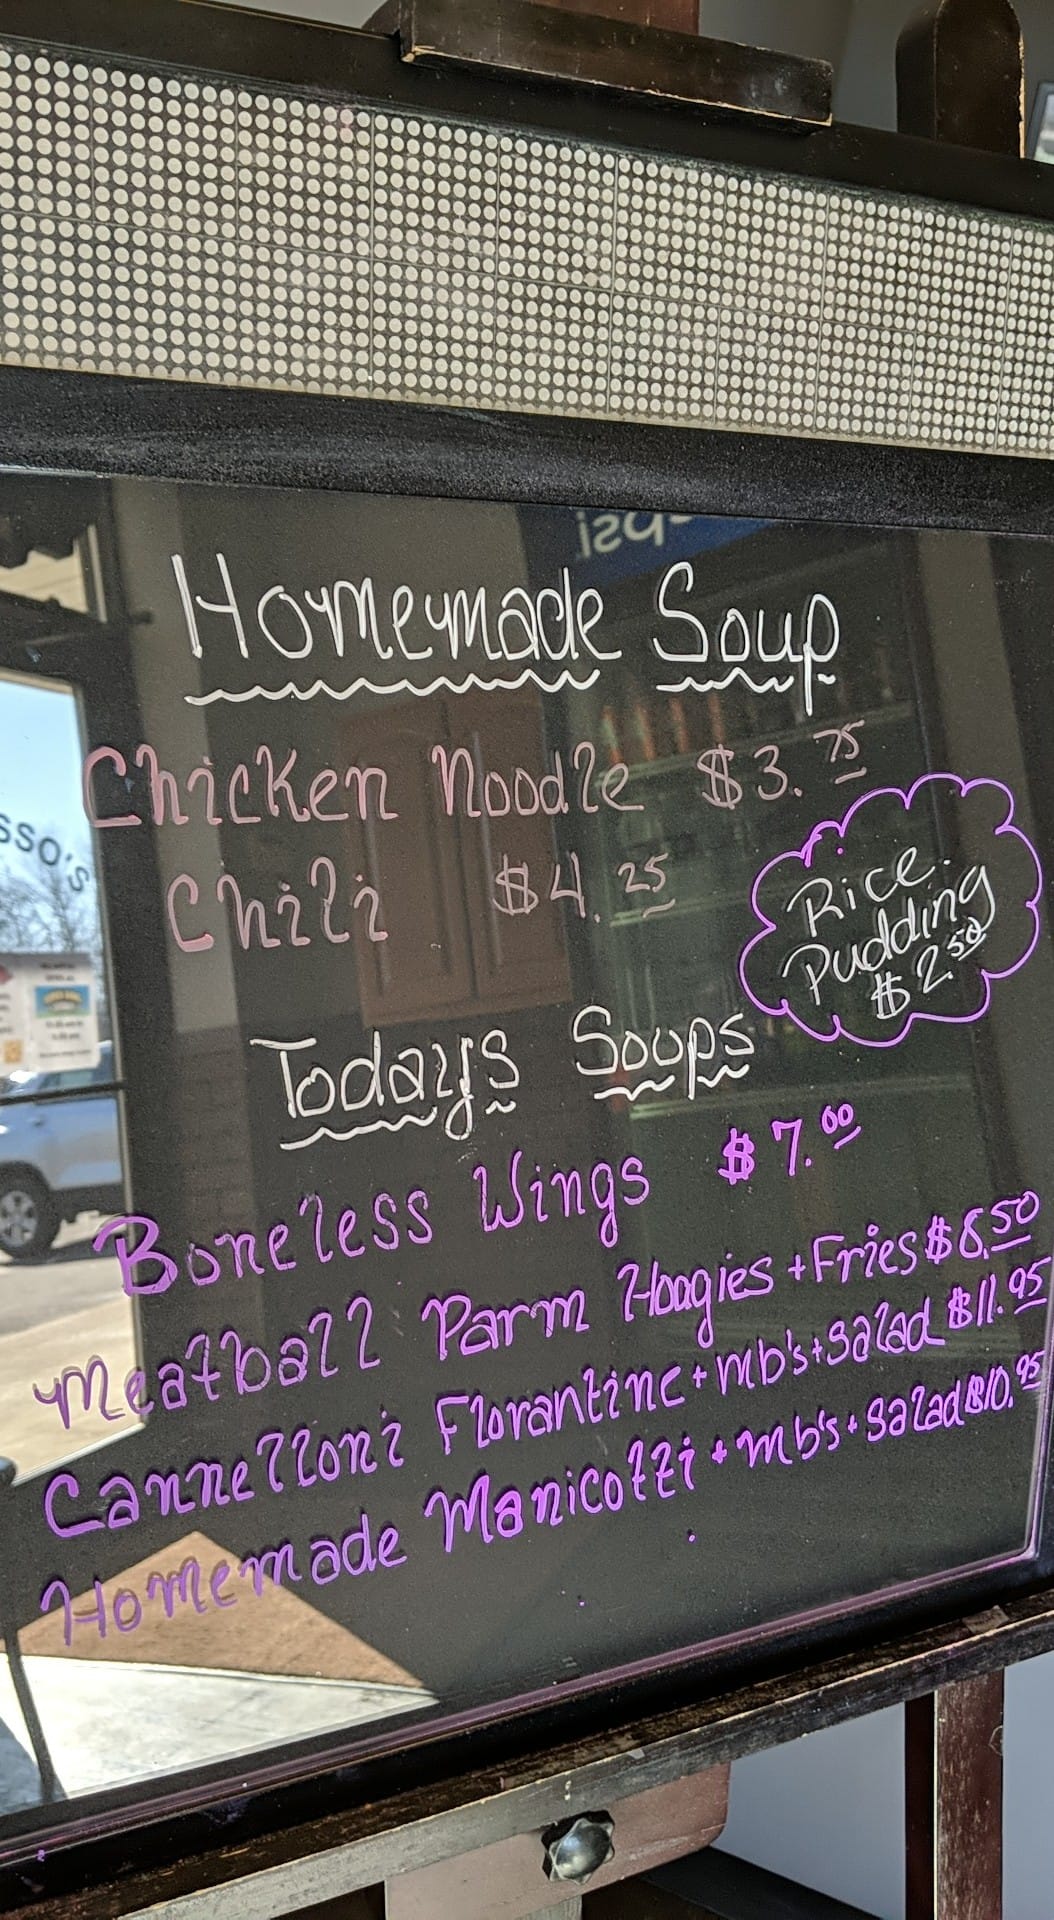 Homemade Soup
Chicken Noodle $3.75
Chili $4.25
Rice
Pudding
$2.50
Todays Soups
Boneless Wings $7.00
Meatball Parm Hoagies + Fries $8.50
Cannelloni Florantine + mb's + Salad $11.95
Homemade Manicotti + mb's + Salad $10.95
sso's
Pepsi